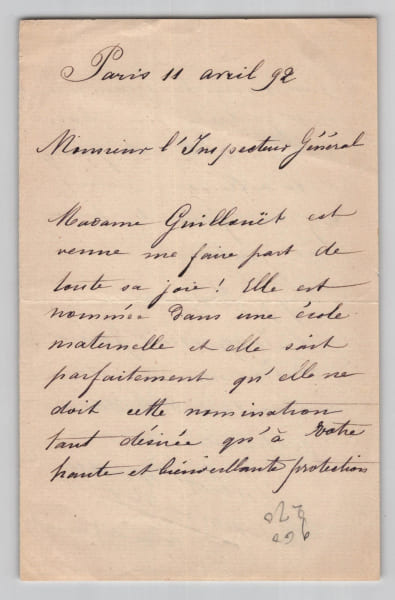 Paris 11 avril 92
Monsieur l'Inspecteur Général
Madame Guillouët est
venue me faire part de
toute sa joie! Elle est
nommée dans une école
maternelle et elle sait
parfaitement qu'elle ne
doit cette nomination
tant désirée qu'à votre
haute et bienveillante protection